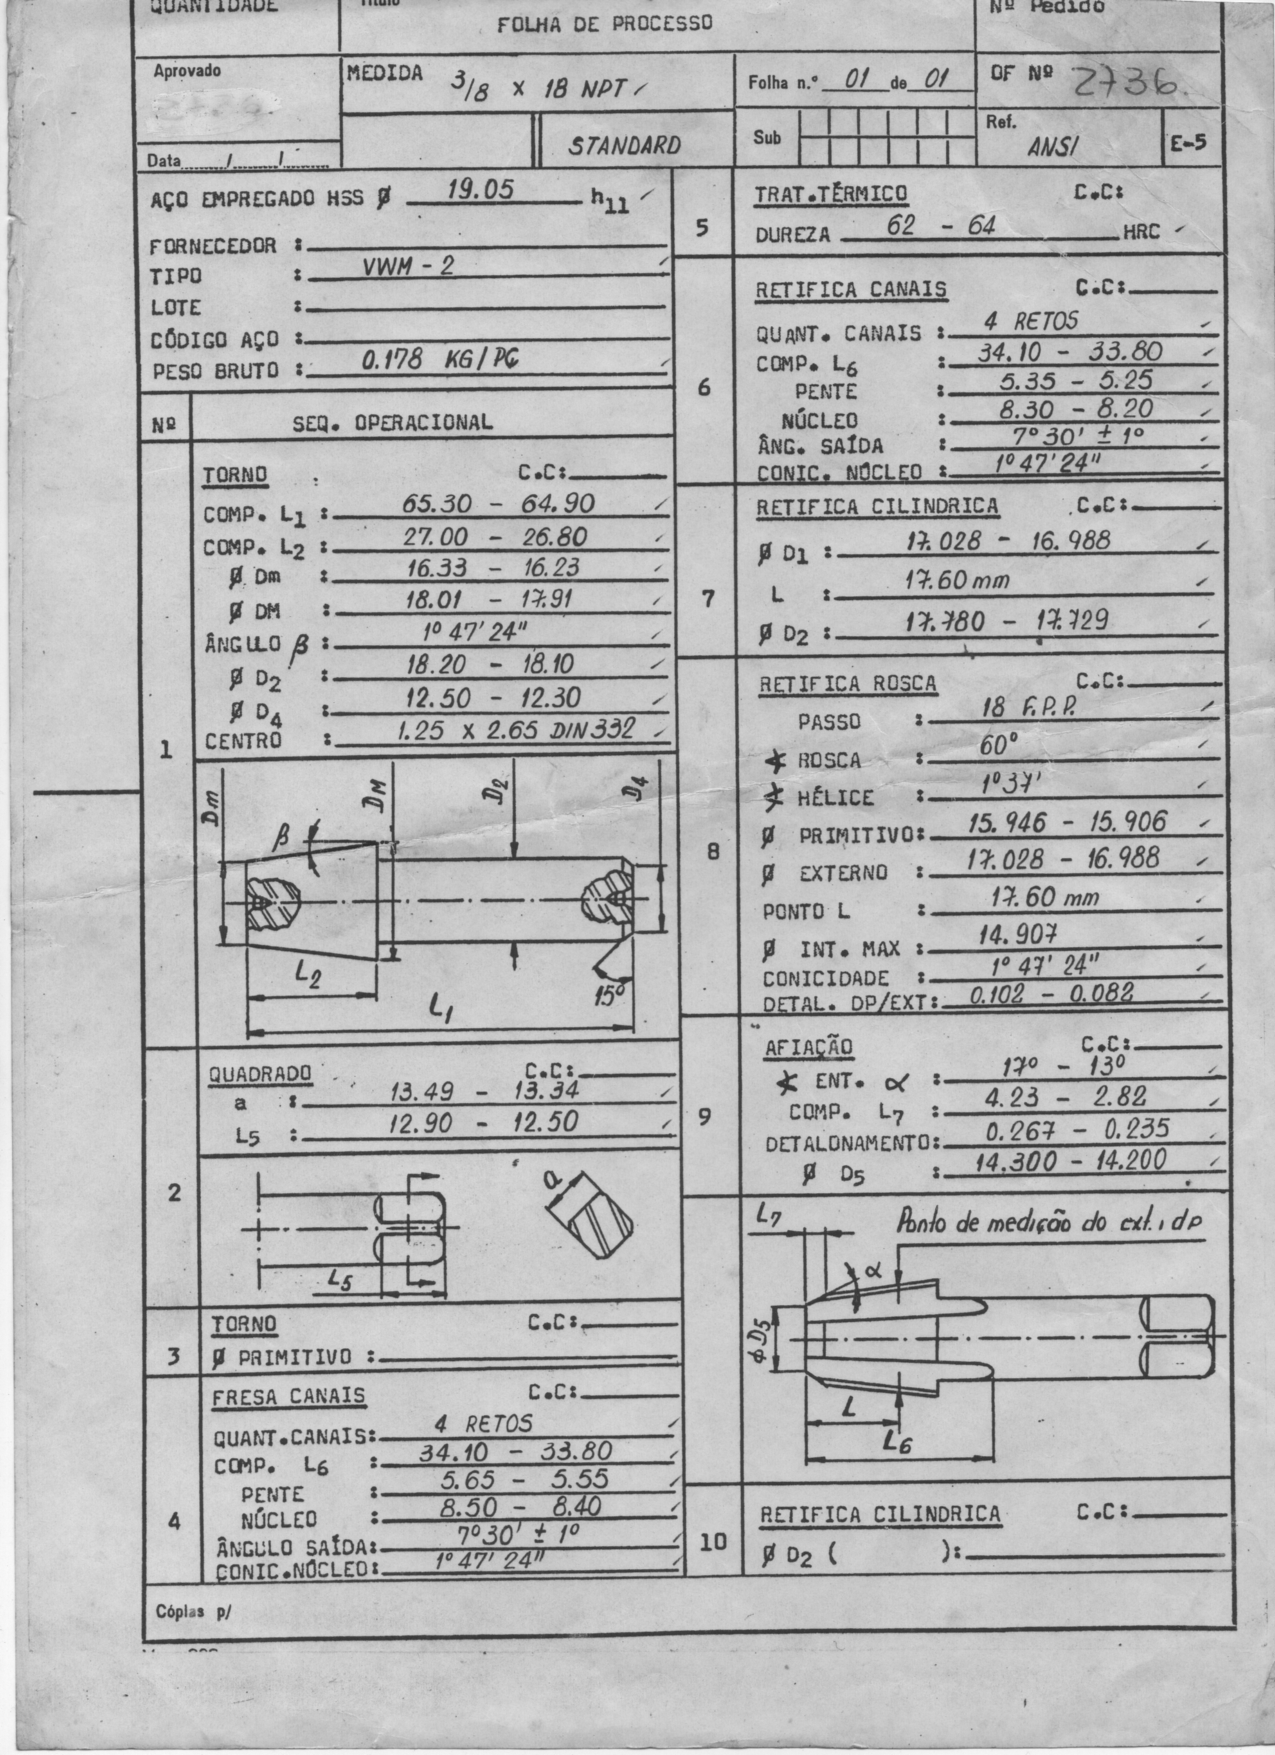 QUANTIDADE
Título
FOLHA DE PROCESSO
Nº Pedido
Aprovado
Data ....../....../......
MEDIDA 3/8 x 18 NPT
STANDARD
Folha n.º 01 de 01
OF Nº 2736.
Sub
Ref.
ANSI
E-5
AÇO EMPREGADO HSS Ø 19.05 h11
FORNECEDOR :
TIPO : VWM - 2
LOTE :
CÓDIGO AÇO :
PESO BRUTO : 0.178 KG/PÇ
Nº SEQ. OPERACIONAL
1
TORNO C.C:
COMP. L1 : 65.30 - 64.90
COMP. L2 : 27.00 - 26.80
Ø Dm : 16.33 - 16.23
Ø DM : 18.01 - 17.91
ÂNGULO β : 1º 47' 24"
Ø D2 : 18.20 - 18.10
Ø D4 : 12.50 - 12.30
CENTRO : 1.25 x 2.65 DIN 332
Dm
DM
D2
D4
β
L2
L1
15º
2
QUADRADO C.C:
a : 13.49 - 13.34
L5 : 12.90 - 12.50
a
L5
3
TORNO C.C:
Ø PRIMITIVO :
4
FRESA CANAIS C.C:
QUANT.CANAIS: 4 RETOS
COMP. L6 : 34.10 - 33.80
PENTE : 5.65 - 5.55
NÚCLEO : 8.50 - 8.40
ÂNGULO SAÍDA: 7º30' ± 1º
CONIC.NÚCLEO: 1º 47' 24"
5
TRAT.TÉRMICO C.C:
DUREZA 62 - 64 HRC
6
RETIFICA CANAIS C.C:
QUANT. CANAIS : 4 RETOS
COMP. L6 : 34.10 - 33.80
PENTE : 5.35 - 5.25
NÚCLEO : 8.30 - 8.20
ÂNG. SAÍDA : 7º30' ± 1º
CONIC. NÚCLEO : 1º 47' 24"
7
RETIFICA CILINDRICA C.C:
Ø D1 : 17.028 - 16.988
L : 17.60 mm
Ø D2 : 17.780 - 17.729
8
RETIFICA ROSCA C.C:
PASSO : 18 F.P.P.
∢ ROSCA : 60º
∢ HÉLICE : 1º37'
Ø PRIMITIVO: 15.946 - 15.906
Ø EXTERNO : 17.028 - 16.988
PONTO L : 17.60 mm
Ø INT. MAX : 14.907
CONICIDADE : 1º 47' 24"
DETAL. DP/EXT: 0.102 - 0.082
9
AFIAÇÃO C.C:
∢ ENT. α : 17º - 13º
COMP. L7 : 4.23 - 2.82
DETALONAMENTO: 0.267 - 0.235
Ø D5 : 14.300 - 14.200
L7
Ponto de medição do ext. i dp
α
Ø D5
L
L6
10
RETIFICA CILINDRICA C.C:
Ø D2 ( ):
Cópias p/